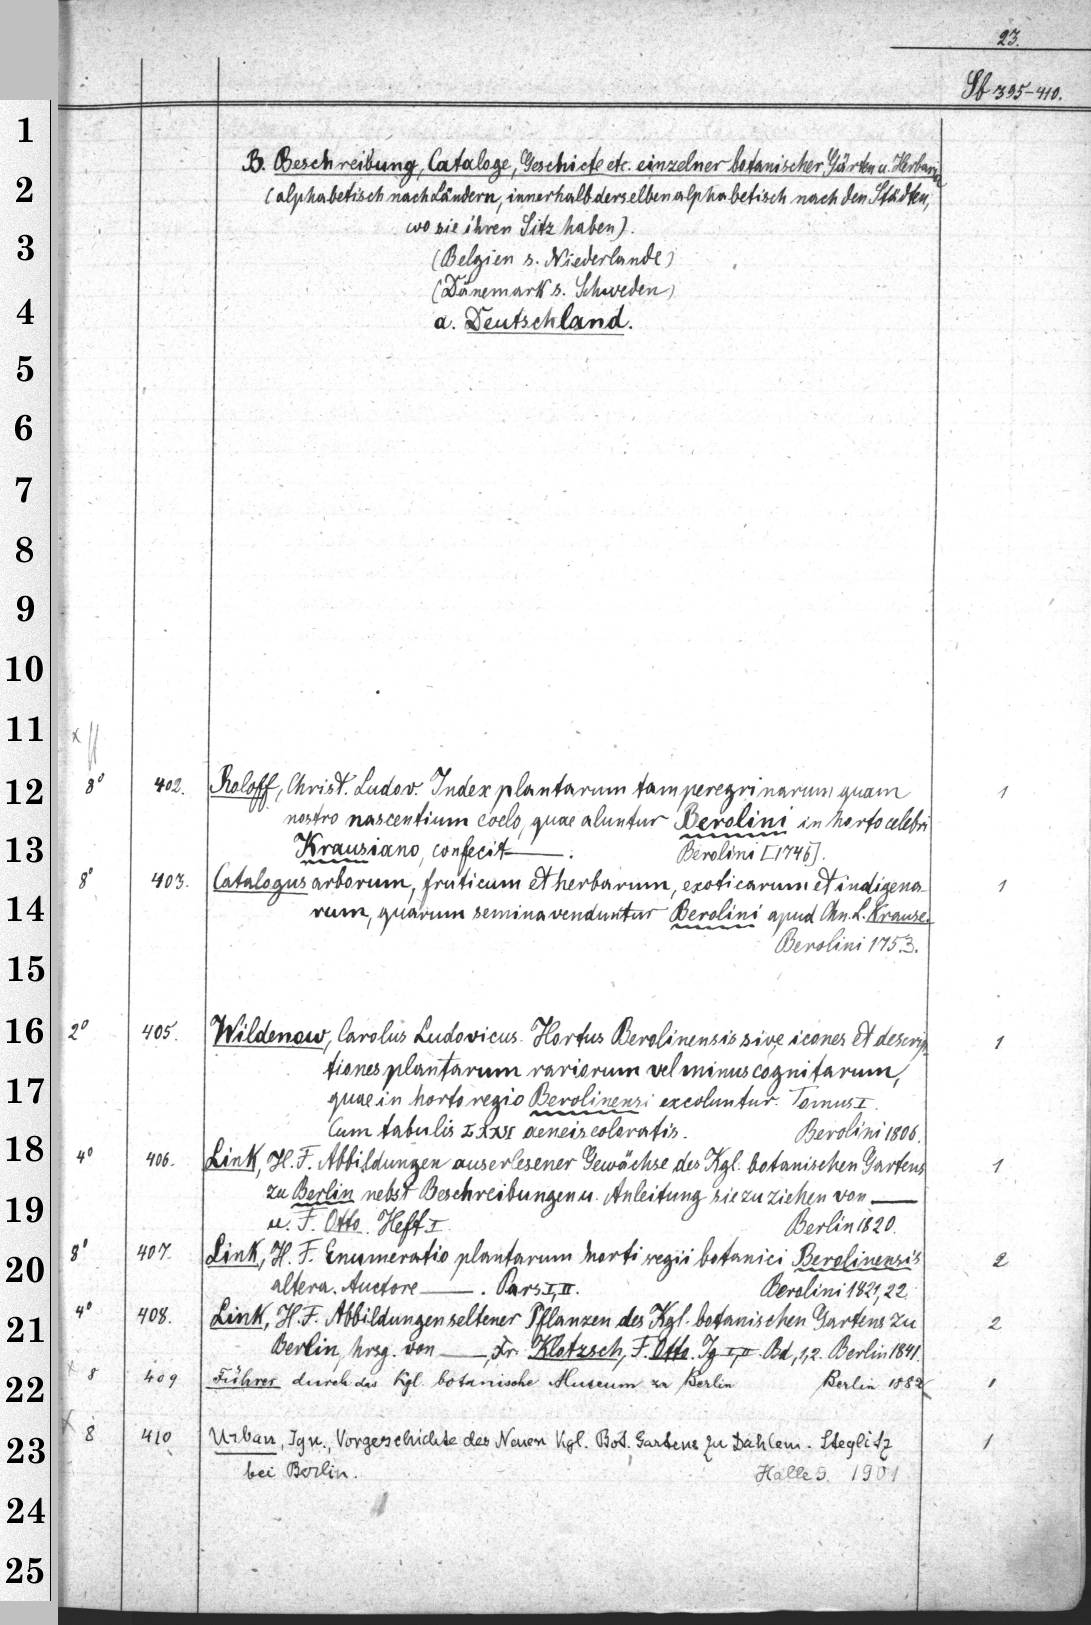 23.
Sb 395-410.
B. Beschreibung, Cataloge, Geschicte etc. einzelner botanischer Gärten u. Herbaria
(alphabetisch nach Ländern, innerhalb derselben alphabetisch nach den Städten,
wo sie ihren Sitz haben).
(Belgien s. Niederlande)
(Dänemark s. Schweden)
a. Deutschland.
8° 402. Roloff, Christ. Ludov. Index plantarum tam peregrinarum quam 1
nostro nascentium coelo, quae aluntur Berolini in horto celebri
Krausiano, confecit —. Berolini [1746].
8° 403. Catalogus arborum, fruticum et herbarum, exoticarum et indigena- 1
rum, quarum semina venduntur Berolini apud Chn. L. Krause.
Berolini 1753.
2° 405. Wildenow, Carolus Ludovicus. Hortus Berolinensis sive icones et descrip- 1
tiones plantarum rariorum vel minus cognitarum,
quae in horto regio Berolinensi excoluntur. Tomus I.
Cum tabulis LXXVI aeneis coloratis. Berolini 1806.
4° 406. Link, H. F. Abbildungen auserlesener Gewächse des Kgl. botanischen Gartens 1
zu Berlin nebst Beschreibungen u. Anleitung sie zu ziehen von —
u. F. Otto. Heft I. Berlin 1820.
8° 407. Link, H. F. Enumeratio plantarum horti regii botanici Berolinensis 2
altera. Auctore —. Pars I, II. Berolini 1821, 22.
4° 408. Link, H. F. Abbildungen seltener Pflanzen des Kgl. botanischen Gartens zu 2
Berlin, hrsg. von —, Fr. Klotzsch, F. Otto. Jg I, II Bd, 1,2. Berlin 1841.
x 8 409 Führer durch das Kgl. botanische Museum zu Berlin Berlin 1882 1
x 8 410 Urban, Ign., Vorgeschichte des Neuen Kgl. Bot. Gartens zu Dahlem-Steglitz 1
bei Berlin. Halle S. 1901
1
2
3
4
5
6
7
8
9
10
11
12
13
14
15
16
17
18
19
20
21
22
23
24
25